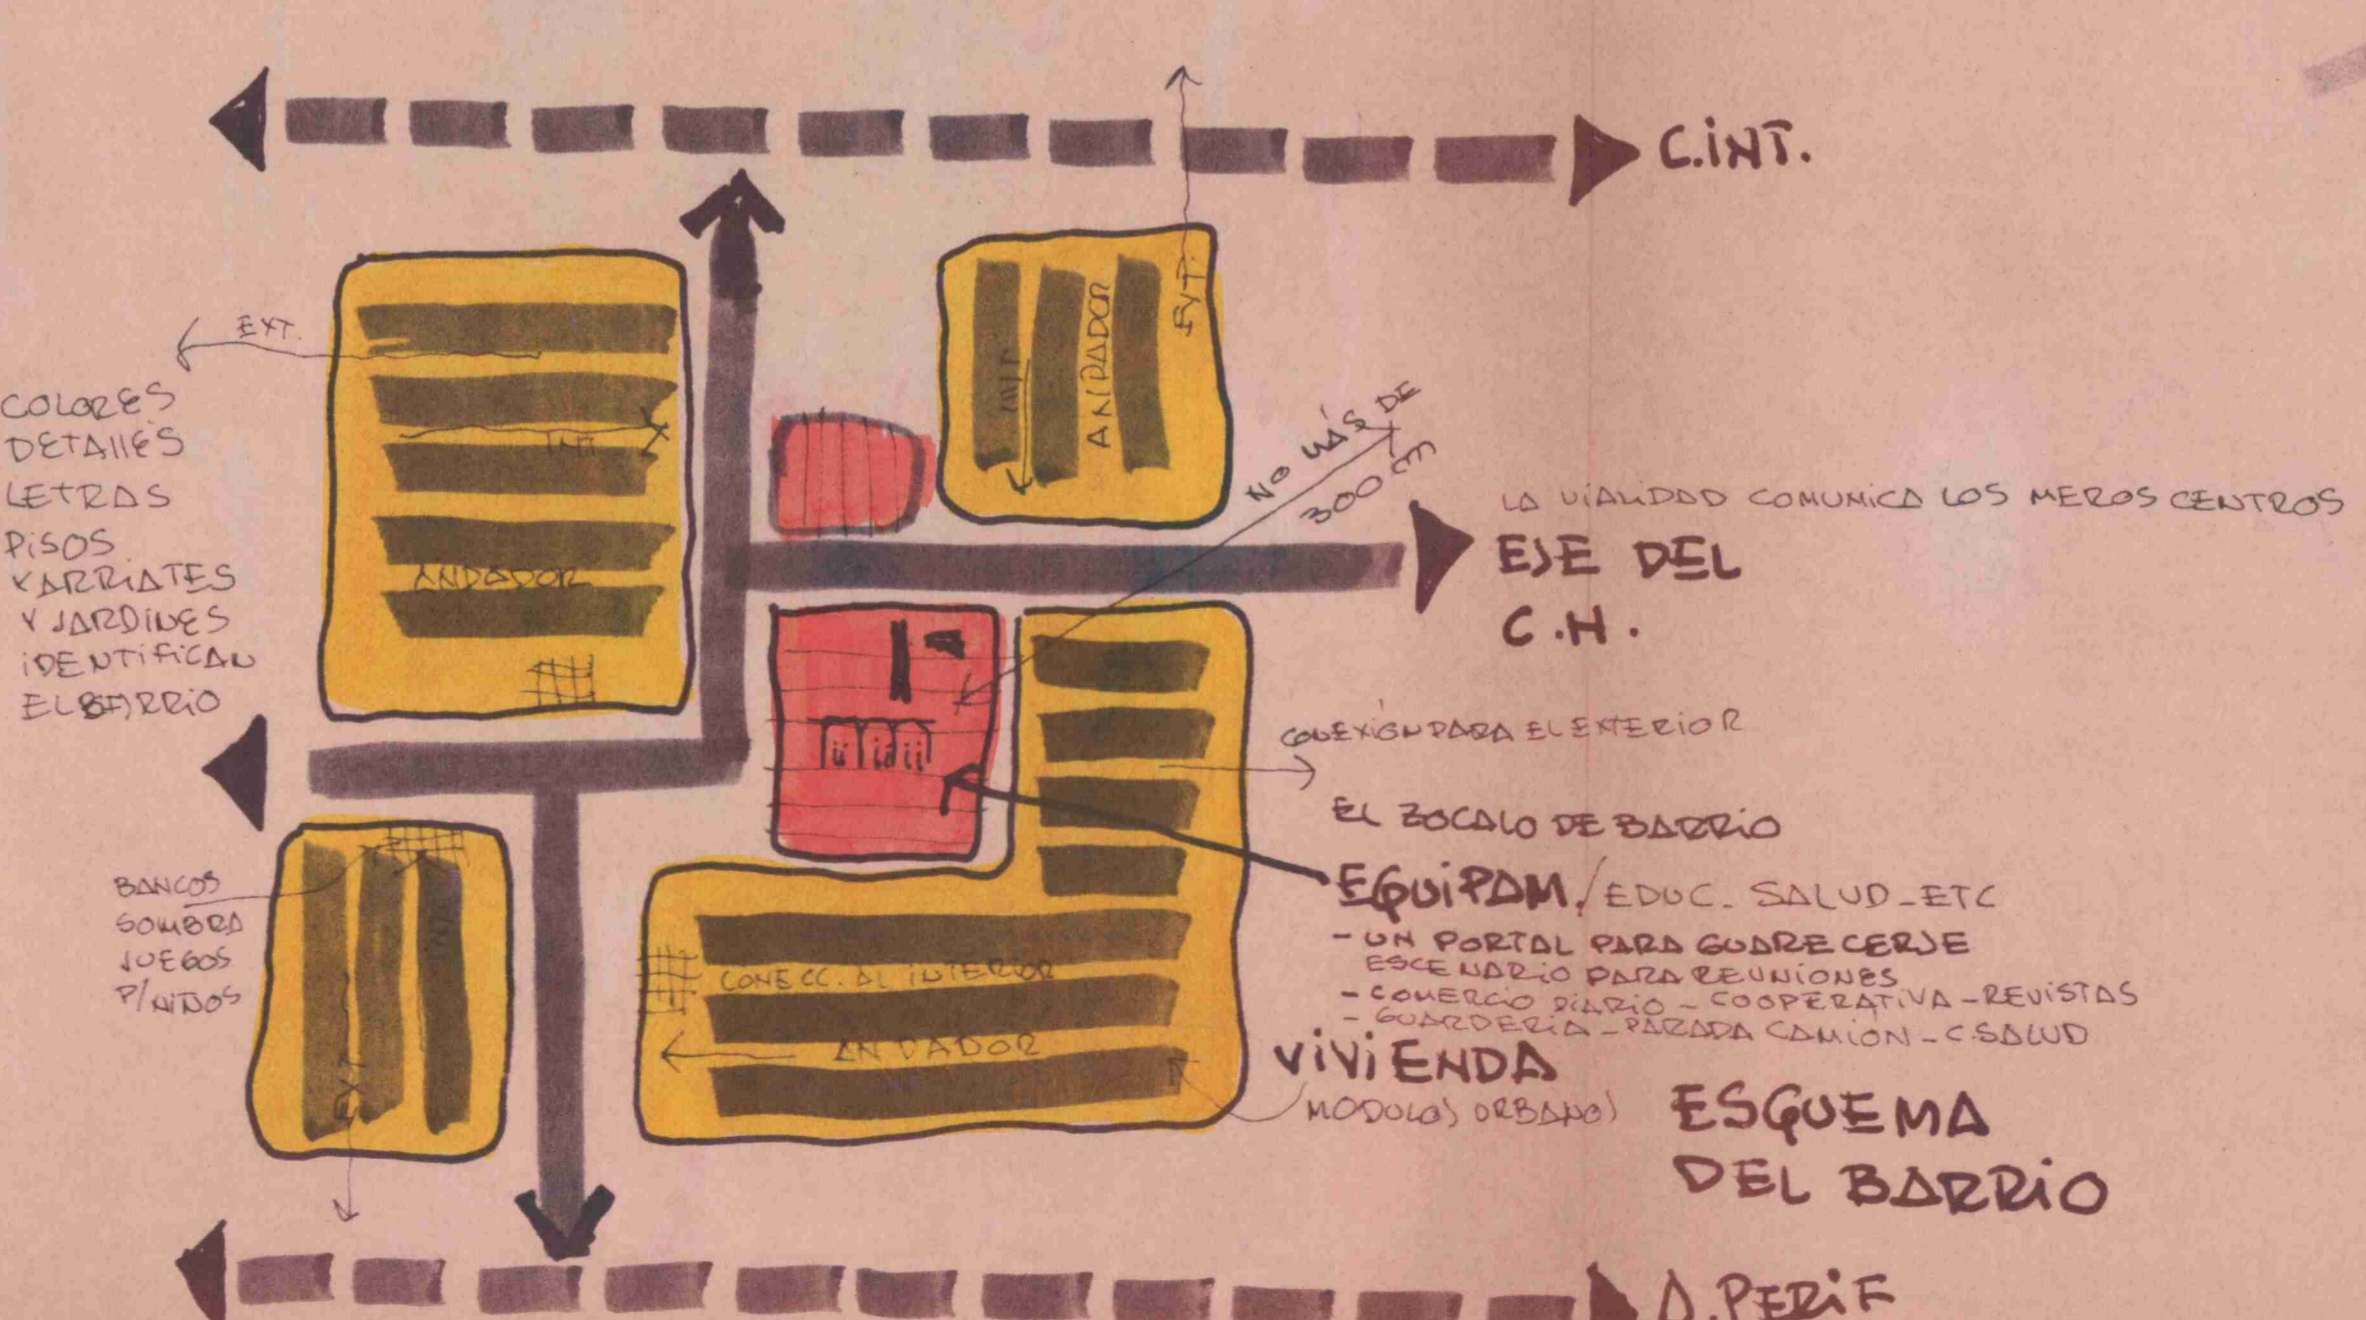 C.INT.
EXT.
COLORES
DETALLES
LETRAS
PISOS
Y ARRIATES
Y JARDINES
IDENTIFICAN
EL BARRIO
INT.
ANDADOR
INT
ANDADOR
EXT.
NO MÁS DE
300 m
LA VIALIDAD COMUNICA LOS MEROS CENTROS
EJE DEL
C.H.
CONEXIÓN PARA EL EXTERIOR
EL ZOCALO DE BARRIO
EQUIPAM./EDUC. SALUD-ETC
- UN PORTAL PARA GUARECERSE
ESCENARIO PARA REUNIONES
- COMERCIO DIARIO - COOPERATIVA - REVISTAS
- GUARDERIA - PARADA CAMIÓN - C.SALUD
VIVIENDA
MODULOS URBANOS
BANCOS
SOMBRA
JUEGOS
P/NIÑOS
INT.
EXT
CONECC. AL INTERIOR
ANDADOR
ESQUEMA
DEL BARRIO
A.PERIF